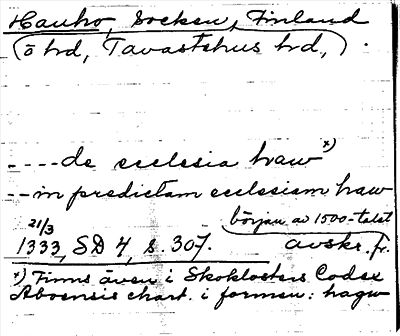 Hauho, Socken, Finland
(ö hd, Tavastehus hd,).
----de ecclesia haw x)
--in predictam ecclesiam haw
början av 1500-talet
21/3
1333, SD 4, s. 307. avskr. fr.
x) Finns även i Skoklosters Codex
Aboensis chart. i formen: hagw